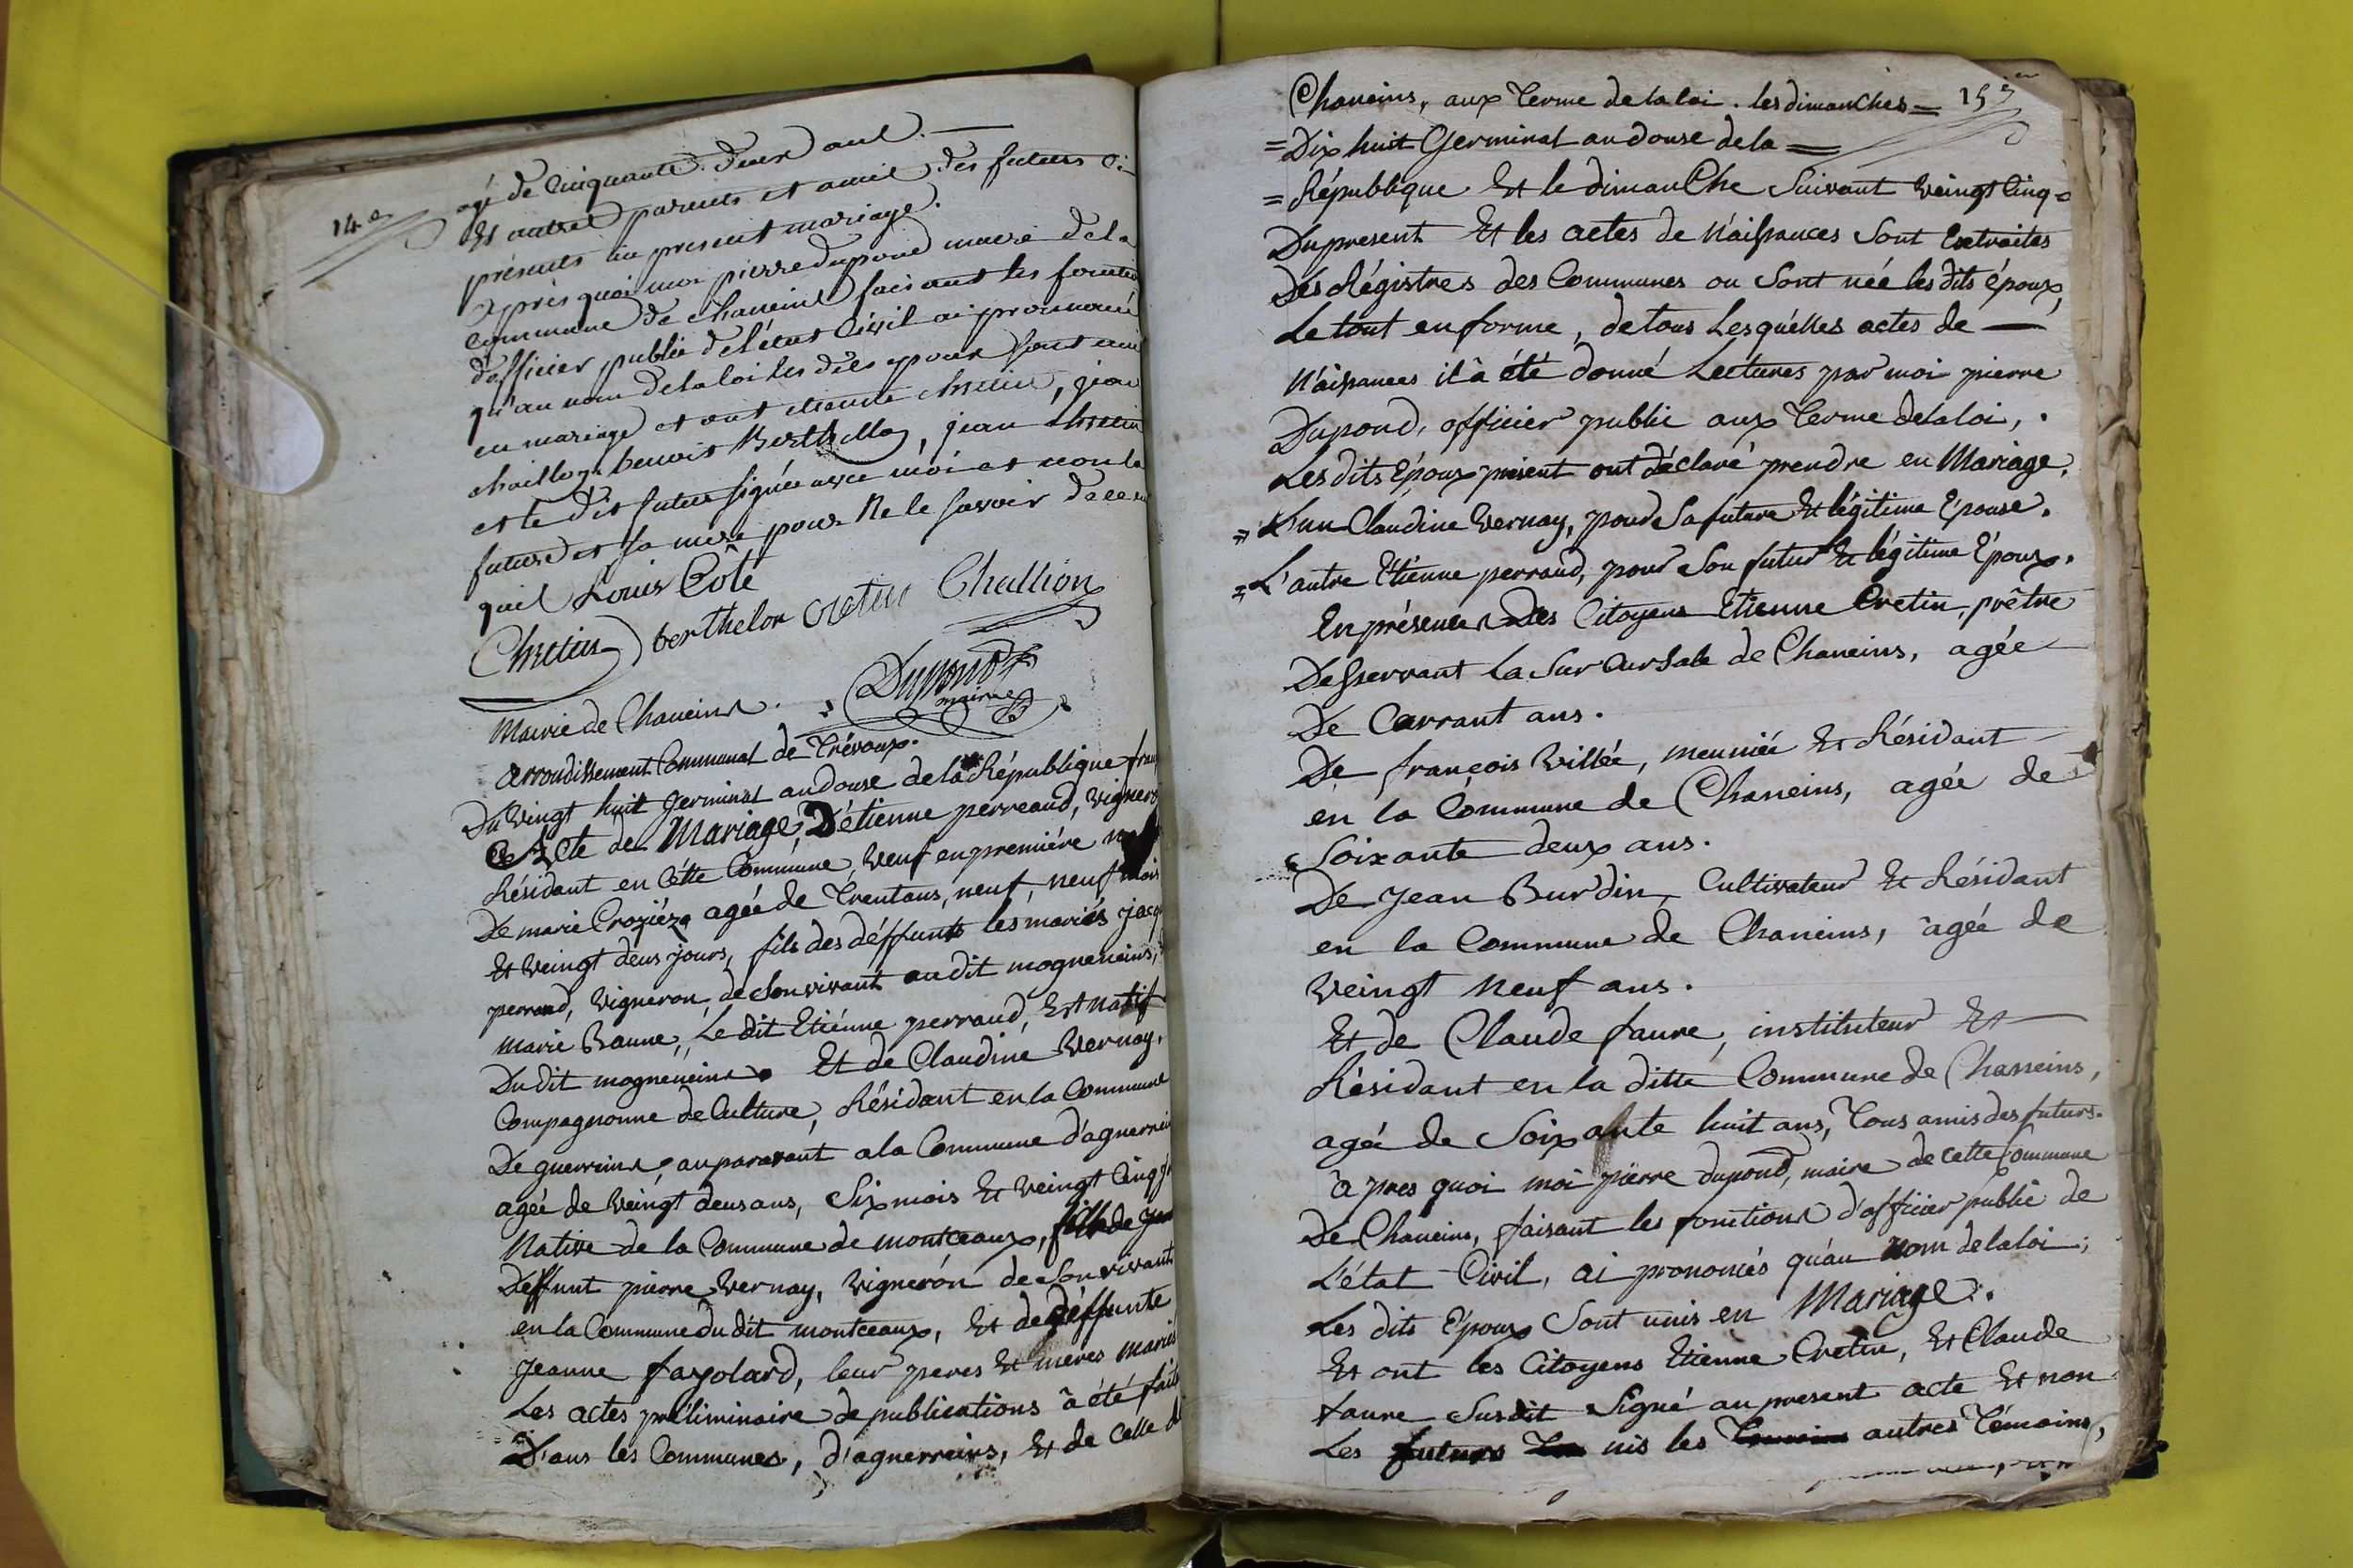 14e
agé de Cinquante. deux ans.
Et autres parents et amis des futurs
présents au present mariage.
après quoi moi pierre dupond maire de la
commune de chaneins faisant les fonctions
d'officier public de l'état Civil ai prononcé
qu'au nom de la loi les dits epoux sont unis
en mariage et ont etienne chretin, jean
chaillon, benoit Berthelon, jean chretin
et le dit futur signée avec moi et non la
future et sa mere pour Ne le savoir de ce
quil Louis Coté
Chretin berthelon cretin Challion
Dupond
maire
Mairie de Chaneins.
arrondissement Communal de Trévoux.
Du Vingt huit Germinal an douse de la République fran
Acte de Mariage, D'étienne perreaud, vigneron
Résidant en cétte Commune, veuf en premiére
De marie Croziéz, agée de Trentans, neuf, neuf mois
Et veingt deus jours, fils des déffunts les mariés jacq
perraud, vigneron, de son vivant au dit mogneneins,
marie Banne, Le dit Etiénne perraud, Est natif
Du dit mogneneins. Et de Claudine Vernay,
Compagnonne de Culture, Résidant en la Commune
De guerreins, auparavant a la Commune d'aguerreins
agée de veingt deus ans, Six mois Et veingt Cinq
Native de la Commune de montceaux, fille de
Deffunt pierre Vernay, vignerón de Son vivant
en la Commune du dit montceaux, Et de déffunte
Jeanne fayolard, leur peres Et meres mariés
Les actes préliminaire de publications à été faite
D'ans les Communes, d'aguerreins, Et de Celle de
15e
Chaneins, aux Terme de la loi. les dimanches =
= Dix huit Germinal an douse de la =
= République Et le dimanChe Suivant veingt Cinq =
Du present Et les actes de N'aissances Sont Extraites
Des Régistres des Communes ou Sont née les dits époux,
Le tout en forme, de tous Lesquélles actes de —
N'aissances il à été donné Lectures par moi pierre
Dupond, officier public aux Terme de la loi, .
Les dits Epoux present ont déclaré prendre en Mariage,
= L'un Claudine Vernay, pour Sa future Et légitime Epouse.
= L'autre Etienne perraud, pour Son futur Et légitime Epoux.
En présences Des Citoyens Etienne Cretin, prêtre
Desservant la Surcursale de Chaneins, agée
De Carrant ans.
De françois Villée, meuniée Et Résidant
en la Commune de Chaneins, agée de
Soixante deux ans.
De Jean Burdin, Cultivateur Et Résidant
en la Commune de Chaneins, agée de
Veingt Neuf ans.
Et de Claude faure, instituteur Et
Résidant en la ditte Commune de Chaneins,
agée de Soixante huit ans, Tous amis des futurs.
à pres quoi moi pierre dupond, maire de cette Commune
De Chaneins, faisant les fonctions d'officier public de
L'état Civil, ai prononcés qu'au nom de la loi,
Les dits Epoux Sont unis en Mariage.
Et ont les Citoyens Etienne Cretin, Et Claude
faure Susdit Signé au present acte Et non
Les futurs nis les autres Témoins,